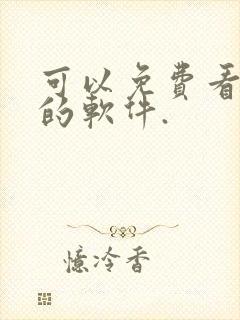 可以免費看
的軟件.
憶冷香